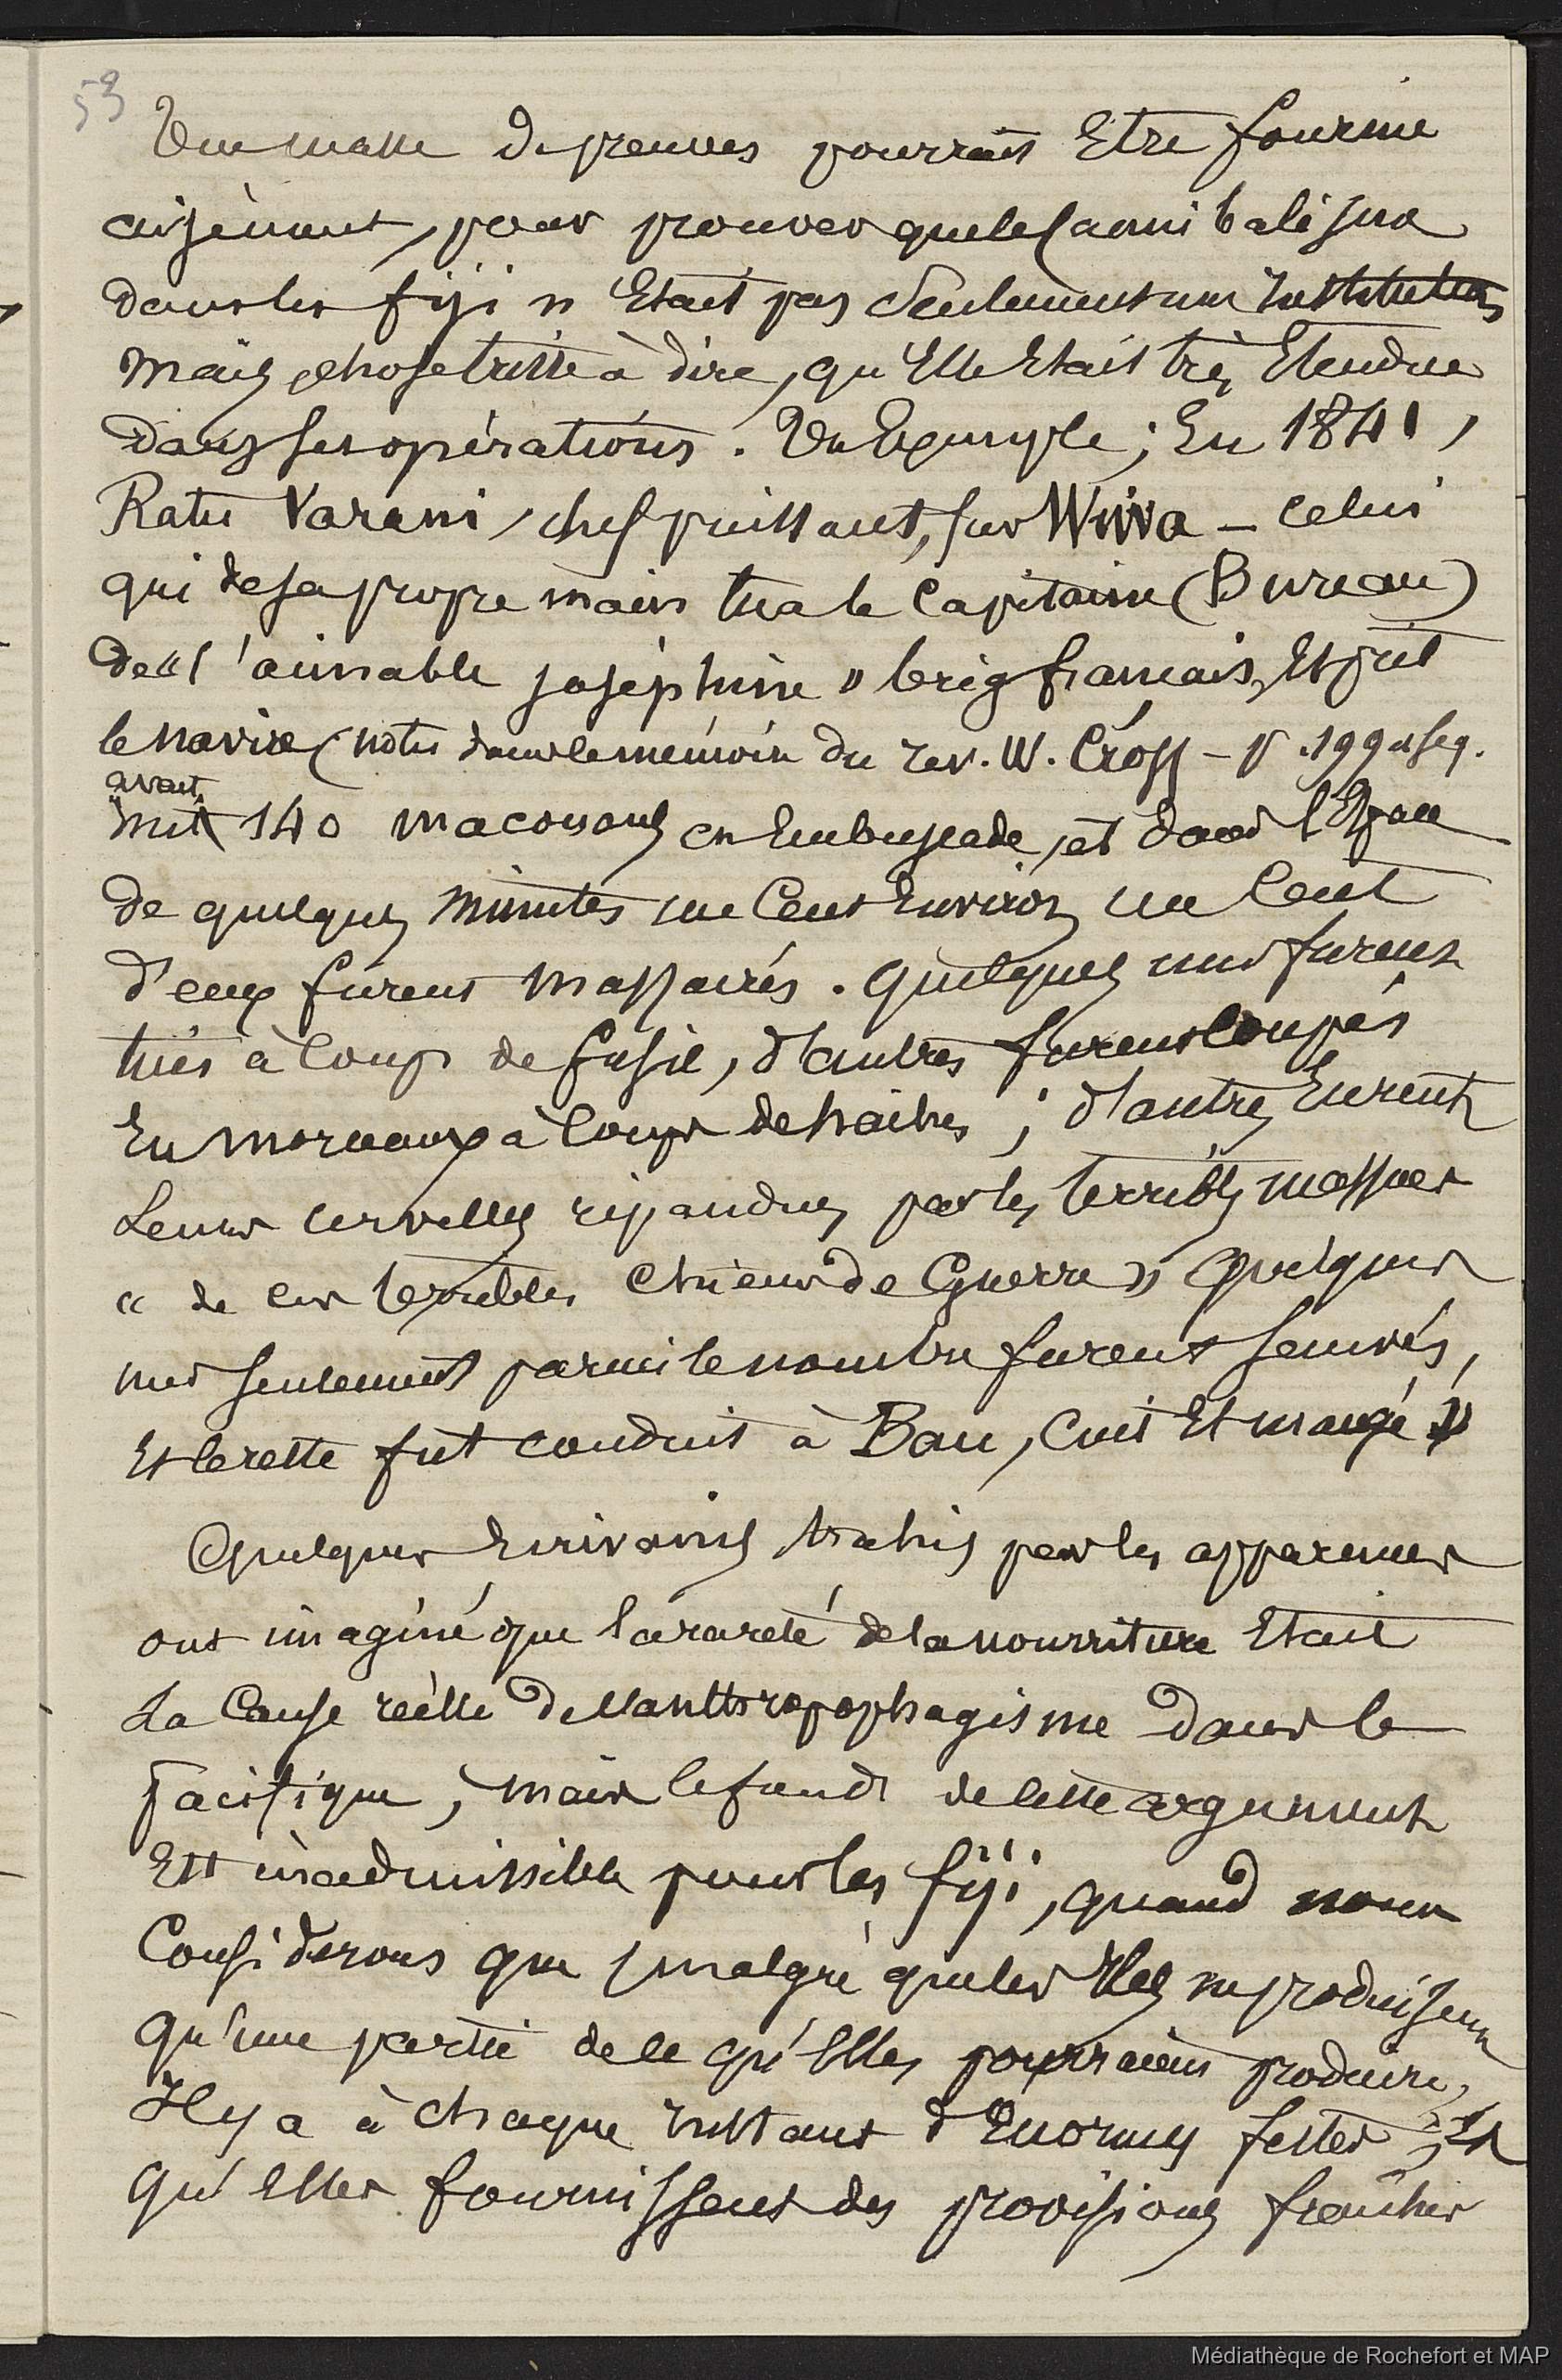 53
Une masse de preuves pourrait Etre fournie
aisèment, pour prouver que le Cannibalisme
dans les fiji n'Etait pas seulement une Institution
mais, chose triste à dire, qu'Elle Etait très Etendue
dans ses opérations. Un Exemple; En 1841,
Ratu Varani, chef puissant, sur Wiva - celui
qui de sa propre main tua le Capitaine (Bureau)
de « l'aimable joséphine » brig français, Et prit
le navire (notes dans le mémoire du rev. W. Cross - p. 199 et seq.
avait
mit 140 maconans en Embuscade, et dans l'Espace
de quelques minutes un Cent Environ un Cent
d'eux furent massacrés. quelques uns furent
tués à Coups de fusil, d'autres furent Coupés
En morceaux à Coups de haches; d'autres Eurent
Leurs cervelles répandues par les terribles massues
« de ces terribles Chiens de Guerre » Quelques
uns seulement parmi le nombre furent sauvés,
Et le reste fut conduit à Bau, Cuit Et mangé »
Quelques Ecrivains trahis par les apparences
ont imaginé que la rareté de la nourriture Etait
La Cause réelle de l'anthropophagisme dans le
Pacifique, mais le fond de cette argument
Est inadmissible pour les fiji, quand nous
Considerons que, malgré que les Iles ne produisent
qu'une partie de ce qu'Elles pourraient produire,
Il y a à Chaque instant d'Enormes festes, Et
qu'Elles fournissent des provisions fraîches
Médiathèque de Rochefort et MAP